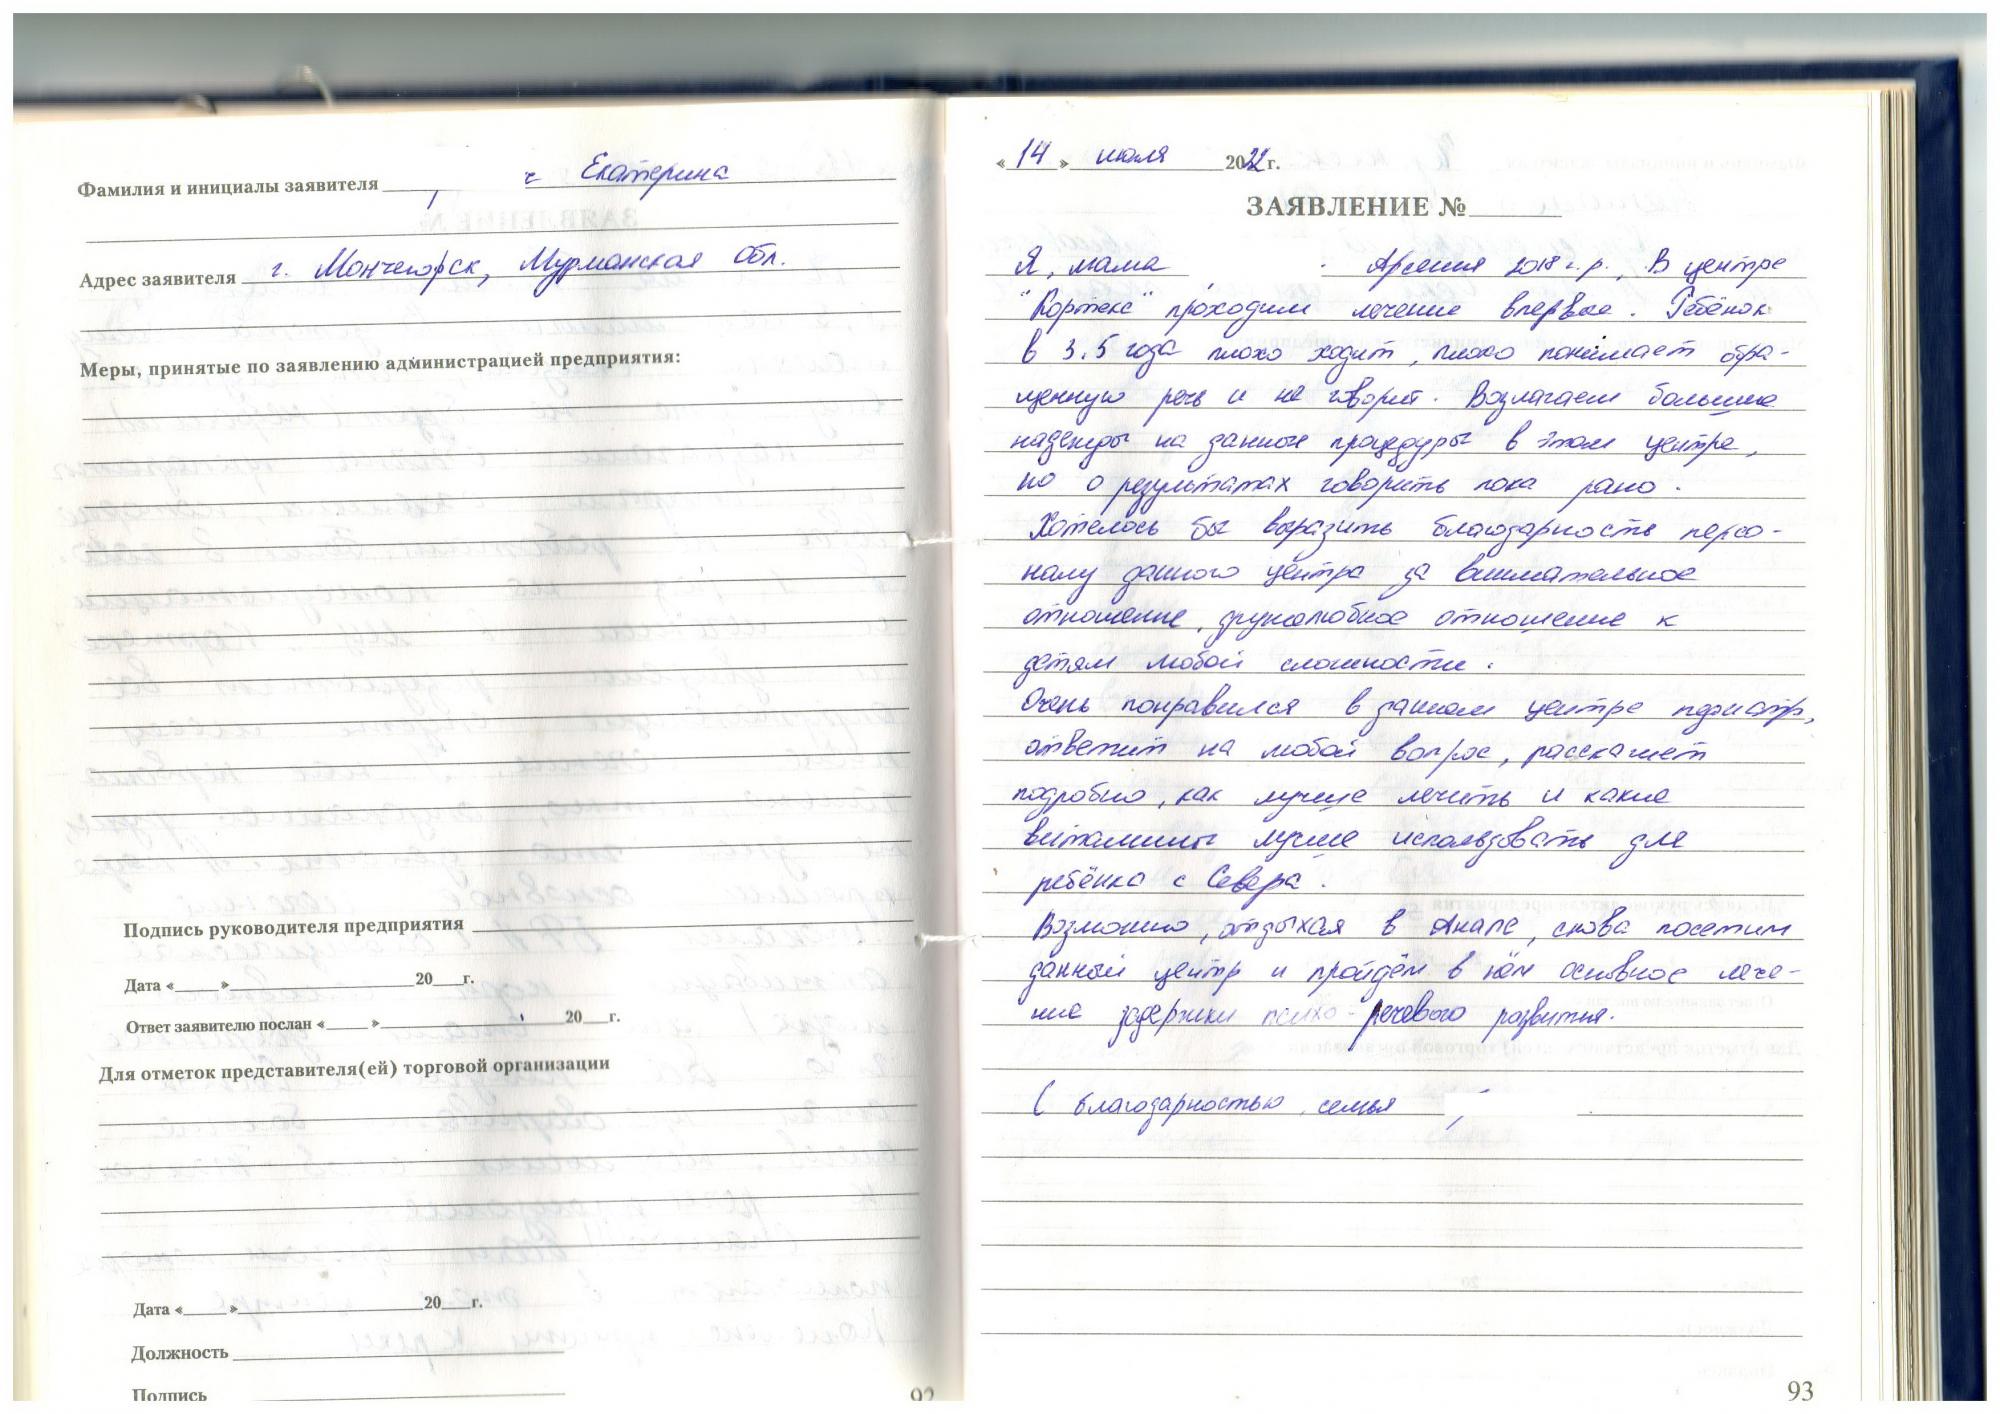 Фамилия и инициалы заявителя Екатерина
Адрес заявителя г. Мончегорск, Мурманская Обл.
Меры, принятые по заявлению администрацией предприятия:
Подпись руководителя предприятия
Дата «____»____20__г.
Ответ заявителю послан «____»____20__г.
Для отметок представителя(ей) торговой организации
Дата «____»____20__г.
Должность
Подпись
92
«14» июля 2022г.
ЗАЯВЛЕНИЕ №
Я, мама Арсения 2018 г.р., В центре
"Кортекс" проходим лечение впервые. Ребёнок
в 3.5 года плохо ходит, плохо понимает обра-
щенную речь и не говорит. Возлагаем большие
надежды на данные процедуры в этом центре,
но о результатах говорить пока рано.
Хотелось бы выразить благодарность персо-
налу данного центра за внимательное
отношение, дружелюбное отношение к
детям любой сложности.
Очень понравился в данном центре педиатр,
ответит на любой вопрос, расскажет
подробно, как лучше лечить и какие
витамины лучше использовать для
ребёнка с Севера.
Возможно, отдыхая в Анапе, снова посетим
данный центр и пройдём в нём основное лече-
ние задержки психо-речевого развития.
С благодарностью, семья
93